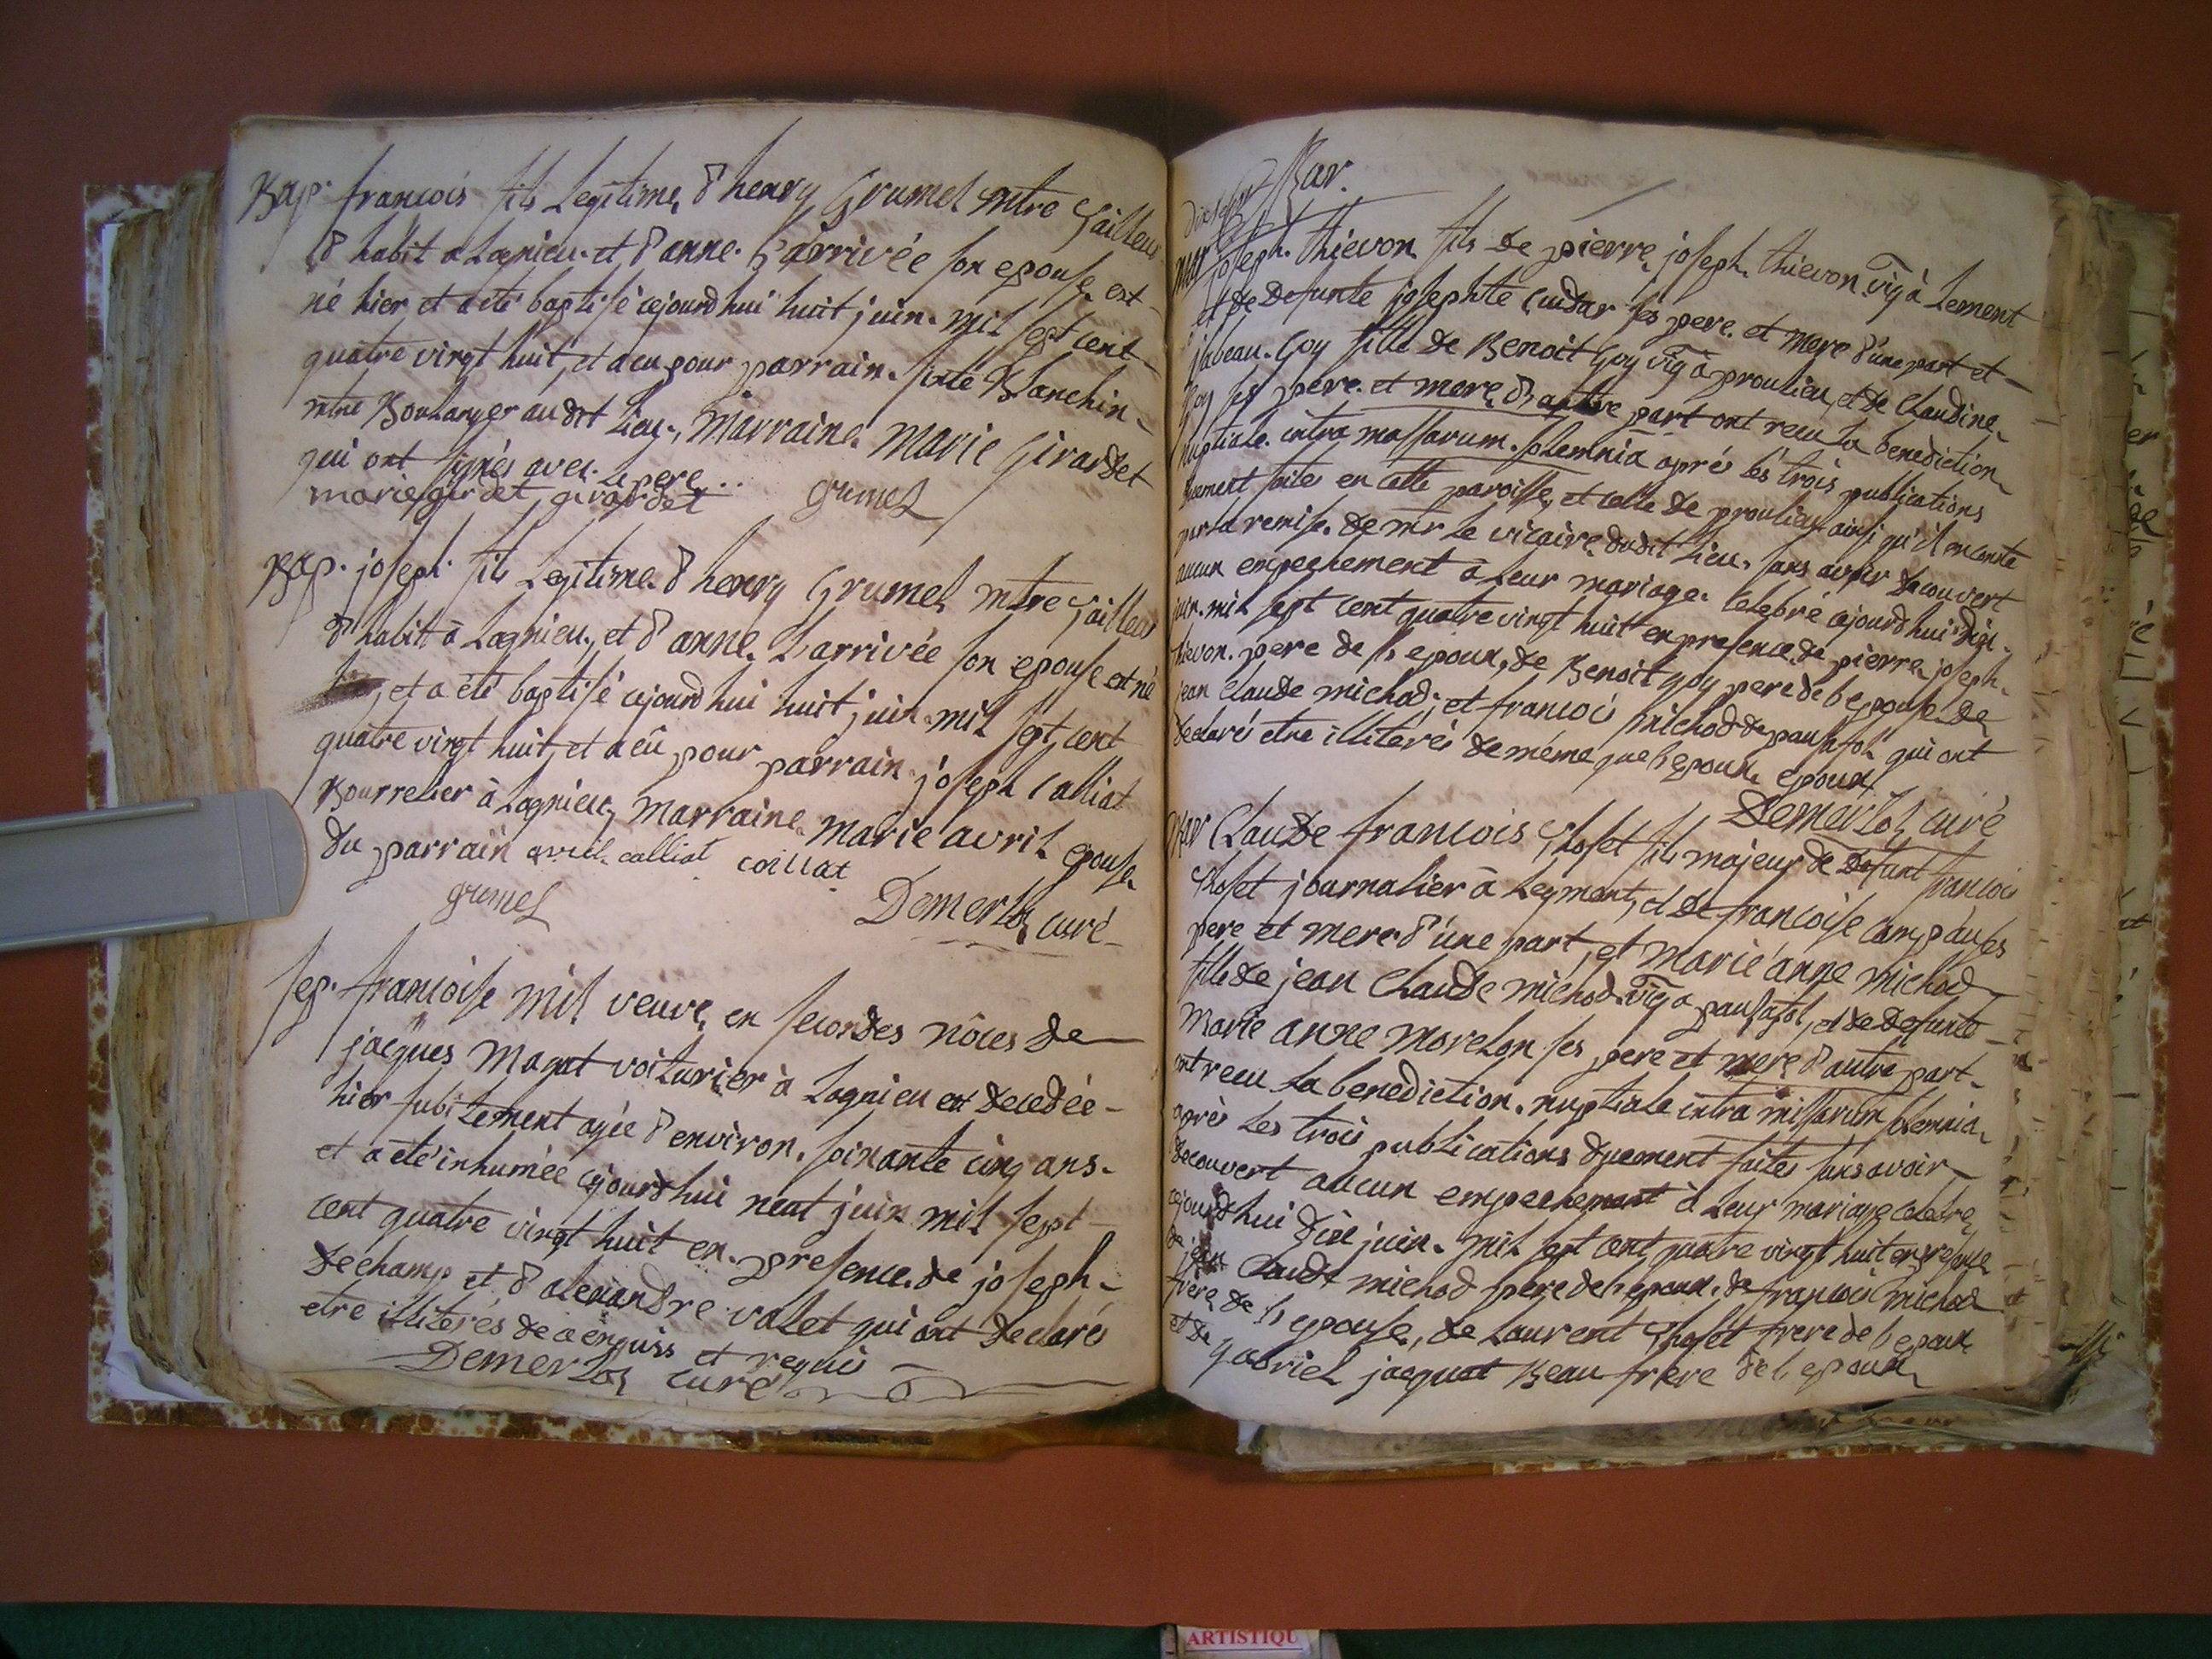 Bap. francois fils Legitime d'henry Grumel mtre tailleur
d'habit a Lagnieu et d'anne Larrivée son epouse est
né hier et a eté baptisé cejourdhui huit juin mil sept cent
quatre vingt huit, et a eu pour parrain Blanchin
mtre Boulanger audit Lieu, Marraine Marie Girardet
qui ont signés avec le pere
marie girardet grumel
Bap. joseph fils Legitime d'henry Grumel mtre tailleur
d'habit à Lagnieu, et d'anne Larrivée son epouse est né
et a eté baptisé cejourdhui huit juin mil sept cent
quatre vingt huit, et a eû pour parrain joseph Calliat
Bourrelier à Lagnieu, Marraine Marie avril epouse
du parrain avril calliat caillat
grumel Demerloz curé
Sep. francoise Mil veuve en secondes nôces de
jacques Magat voiturier à Lagnieu est decedée
hier subitement agée d'environ soixante cinq ans
et a eté inhumée cejourdhui neuf juin mil sept
cent quatre vingt huit en presence de joseph
Dechamp et d'alexandre valet qui ont declaré
etre illiterés de ce enquis et requis
Demerloz curé
Mar joseph thievon fils de pierre joseph thievon vig à Lement
et de defunte josephte Cuidar ses pere et mere d'une part et
jsabeau Goy fille de Benoit Goy vig à proulieu, et de Claudine
Goy ses pere et mere d'autre part ont recu La benediction
Nuptiale intra missarum solemnia aprés les trois publications
duement faites en cette paroisse, et celle de proulieu ainsi qu'il en conste
par la remise de mr le vicaire dudit Lieu sans avoir decouvert
aucun empechement à Leur mariage celebré cejourdhui dix
juin mil sept cent quatre vingt huit en presence de pierre joseph
thievon pere de l'epoux, de Benoit goy pere de l'epouse de
jean claude michod, et francois michod de pausafol qui ont
declarés etre illiterés de méme que l'epouse epoux
Demerloz curé
Mar Claude francois Choset fils majeur de defunt francois
Choset journalier à Leyment, et de francoise Campdu ses
pere et mere d'une part, et Marie anne Michod
fille de jean Claude michod vig a pausafol, et de defunte
Marie anne Morelon ses pere et mere d'autre part
ont recu La benediction nuptiale intra missarum solemnia
aprés Les trois publications duement faites sans avoir
decouvert aucun empechement à Leur mariage celebré
cejourdhui dix juin mil sept cent quatre vingt huit en presence
de jean Claude michod pere de l'epoux de francois michod
frere de l'epouse, de Laurent Choset frere de l'epoux
et de gabriel jacquot Beau frere de l'epoux
ARTISTIQU